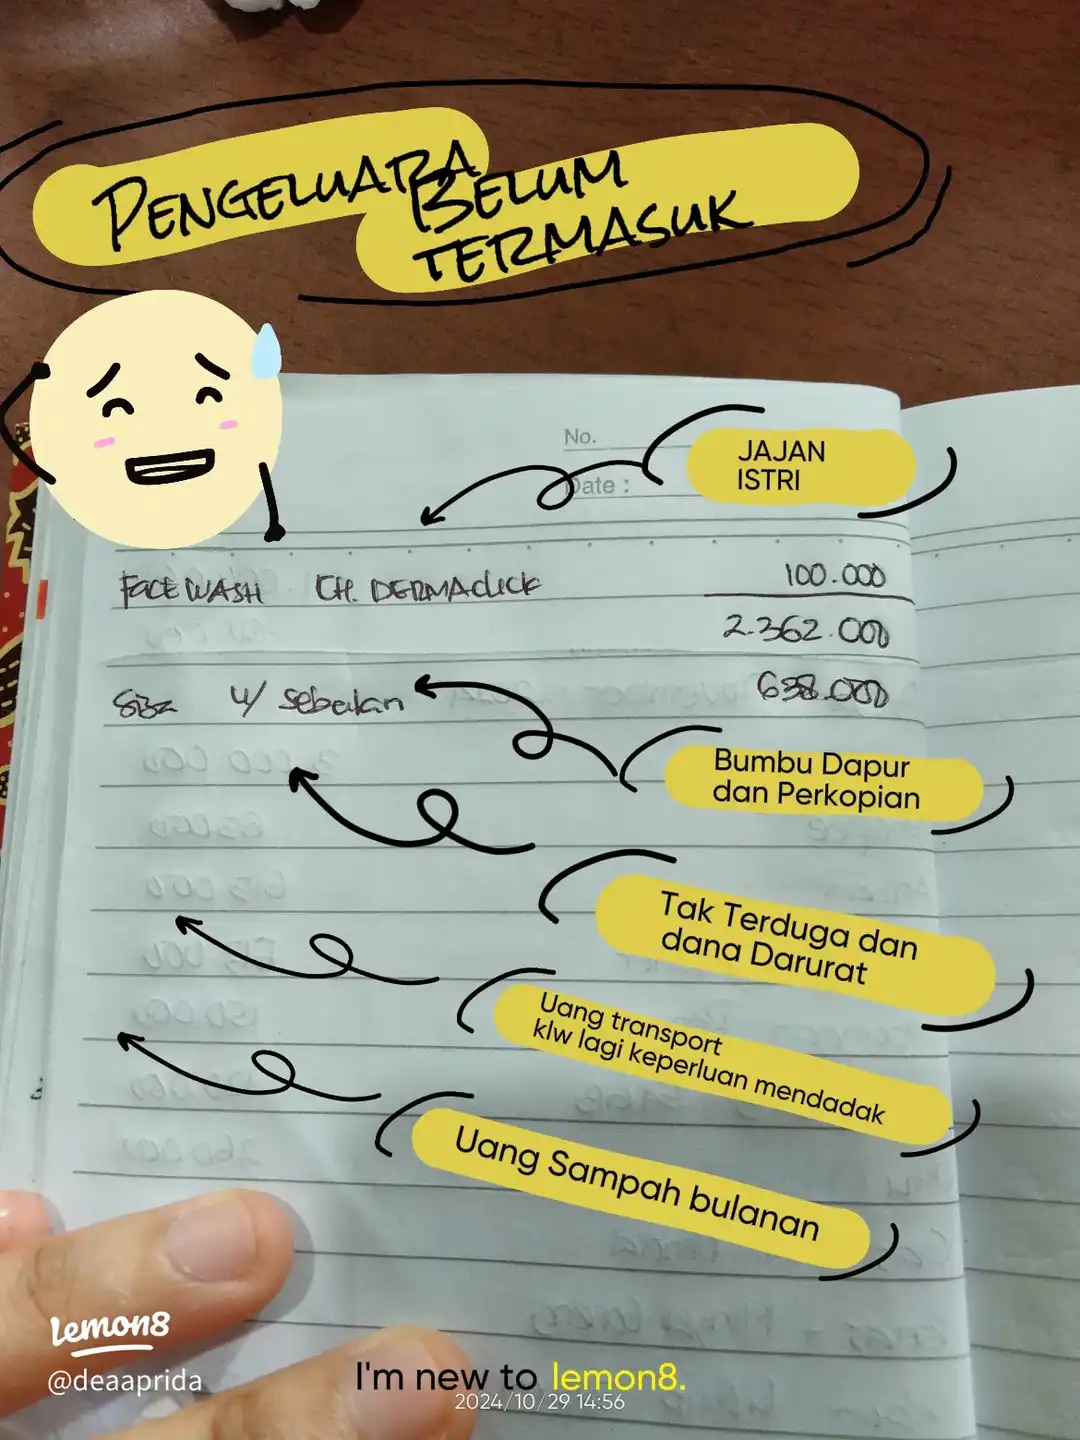 PENGELUARA
BELUM
TERMASUK
No.
Date :
JAJAN
ISTRI
FACE WASH CH. DERMACLICK 100.000
2.362.000
SBz u/ sebulan 638.000
Bumbu Dapur
dan Perkopian
Tak Terduga dan
dana Darurat
Uang transport
klw lagi keperluan mendadak
Uang Sampah bulanan
lemon8
@deaaprida
I'm new to lemon8.
2024/10/29 14:56